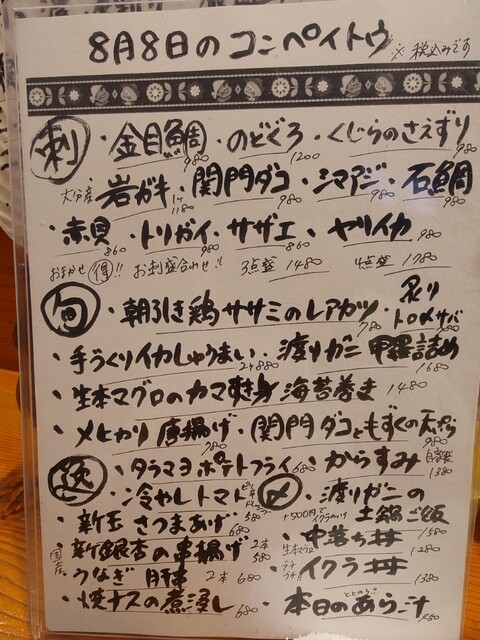 8月8日のコンペイトウ ※税込みです
刺 ・金目鯛 980 ・のどぐろ 1200 ・くじらのさえずり 980
大分産 岩ガキ 1ケ 1180 ・関門ダコ 980 ・シマアジ 980 ・石鯛 980
・赤貝 860 ・トリガイ 980 ・サザエ 860 ・ヤリイカ 980
おまかせ 得!! お刺盛合わせ!! 3点盛 1480 4点盛 1780
旬 ・朝引き鶏ササミのレアカツ 780 ・炙りトロメサバ
・手づくりイカしゅうまい 2ケ 880 ・渡りガニ甲羅詰め 1680
・生本マグロのカマすき身海苔巻き 1480
・メヒカリ唐揚げ 780 ・関門ダコともずくの天ぷら 980
逸 ・タラマヨポテトフライ 680 ・からすみ 自家製 1380
・冷やしトマト 580 〆 ・渡りガニの土鍋ご飯 1580
・新玉さつまあげ 680 +500円でイクラかけ
国産 ・新銀杏の串揚げ 2本 580 ・中落ち丼 生本マグロ 1280
・うなぎ肝串 2本 680 ・イクラ丼 1380
・焼ナスの煮浸し 680 ・本日のあら汁 450